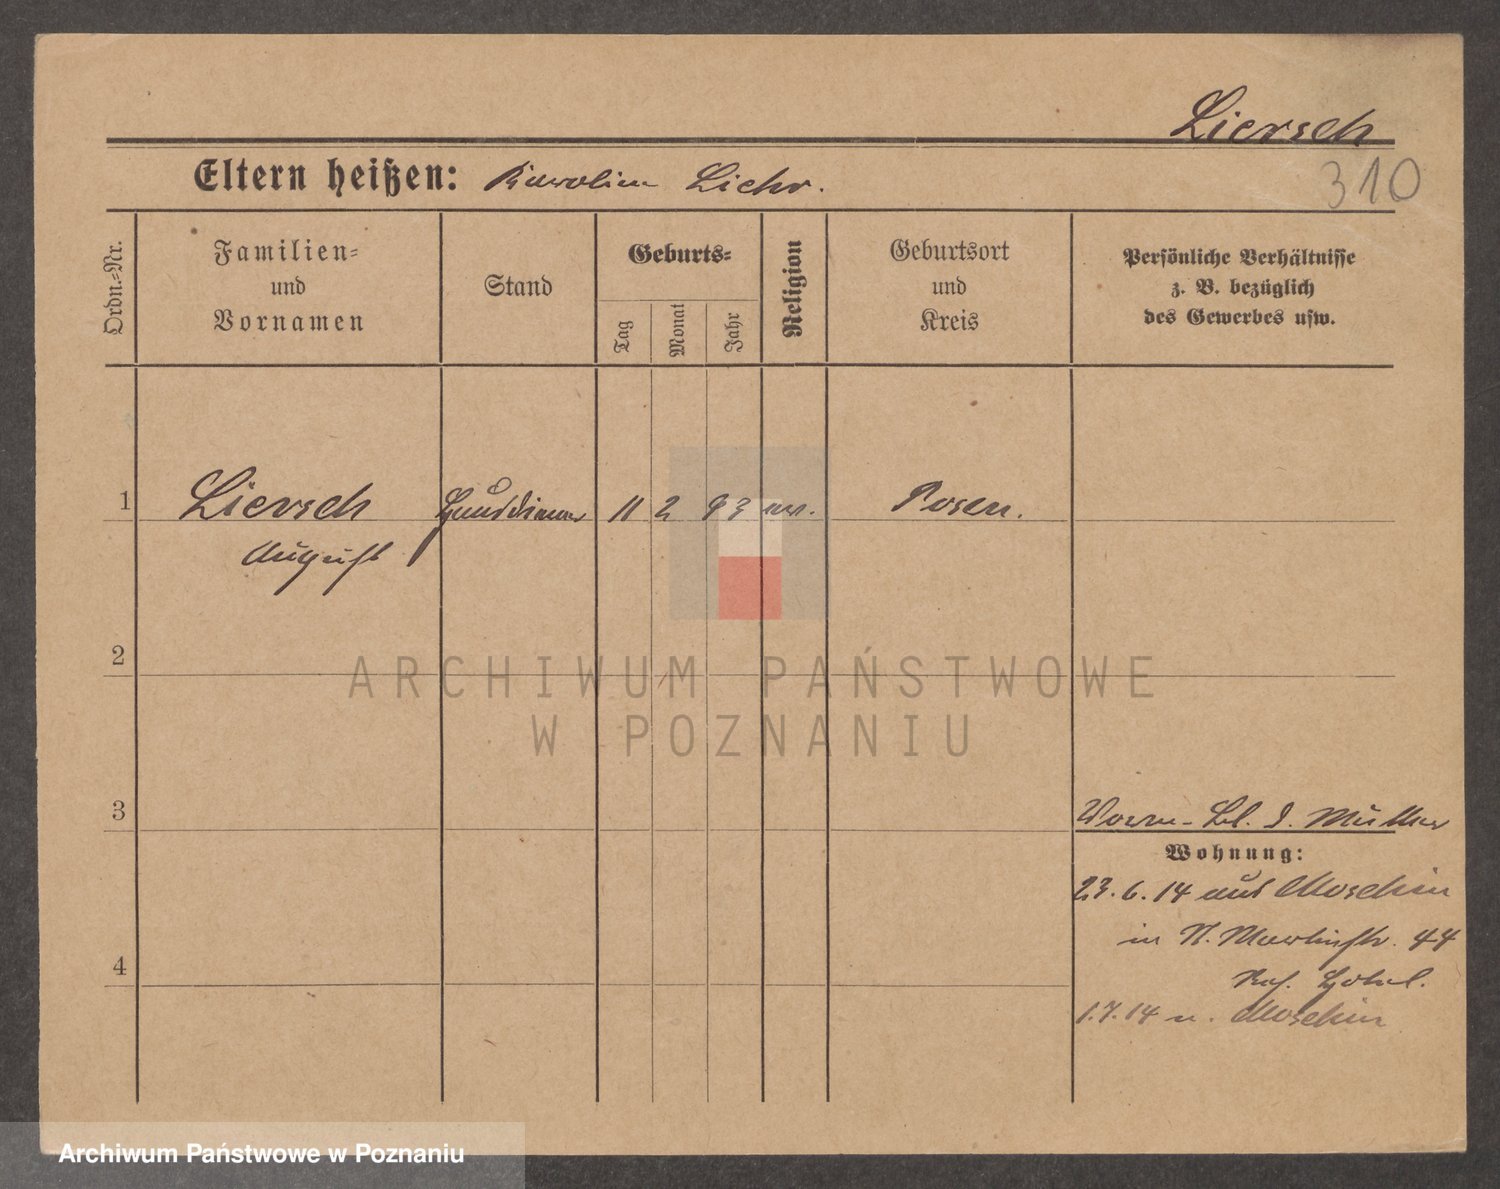 Liersch
310
Eltern heißen: Karolin Liehr.
Ordn.=Nr.
Familien=
und
Vornamen
Stand
Geburts=
Tag
Monat
Jahr
Religion
Geburtsort
und
Kreis
Persönliche Verhältnisse
z. B. bezüglich
des Gewerbes usw.
1 Liersch Hausdiener 11 2 93 ev. Posen.
August
2
ARCHIWUM PAŃSTWOWE
W POZNANIU
3
Müller
Wohnung:
23.6.14 aus Moschin
in St. Martinstr. 44
4
Hotel.
1.7.14 n. Moschin
Archiwum Państwowe w Poznaniu